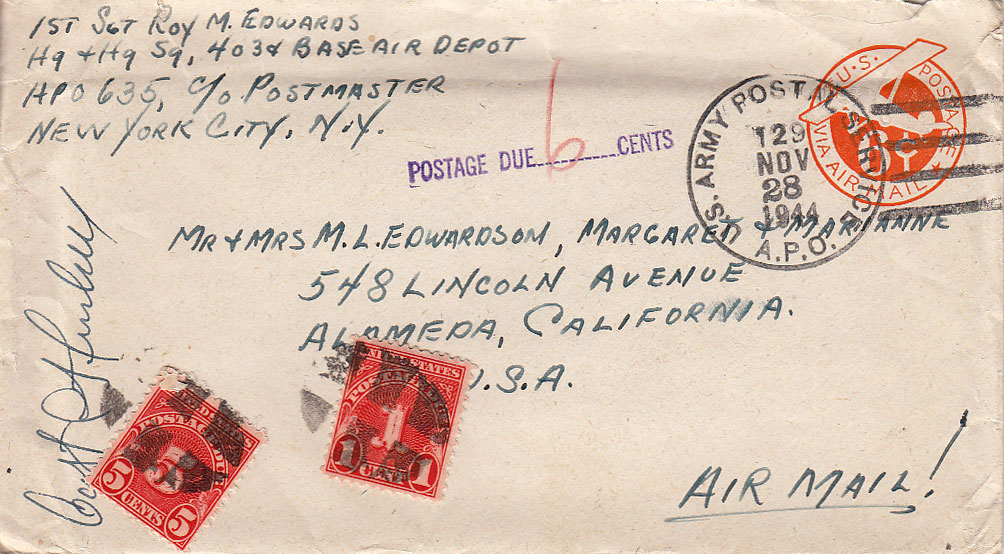 1ST SGT ROY M. EDWARDS
HQ & HQ SQ, 403d BASE AIR DEPOT
APO 635, C/O POSTMASTER
NEW YORK CITY, N.Y.
U.S. POSTAGE
VIA AIR MAIL
U.S. ARMY POSTAL SERVICE
129
NOV
28
1944
A.P.O.
POSTAGE DUE 6 CENTS
MR & MRS M.L. EDWARDSON, MARGARET & MARIANNE
548 LINCOLN AVENUE
ALAMEDA, CALIFORNIA.
U.S.A.
UNITED STATES
POSTAGE DUE
5
5 CENTS 5
UNITED STATES
POSTAGE DUE
1
1 CENT 1
AIR MAIL!